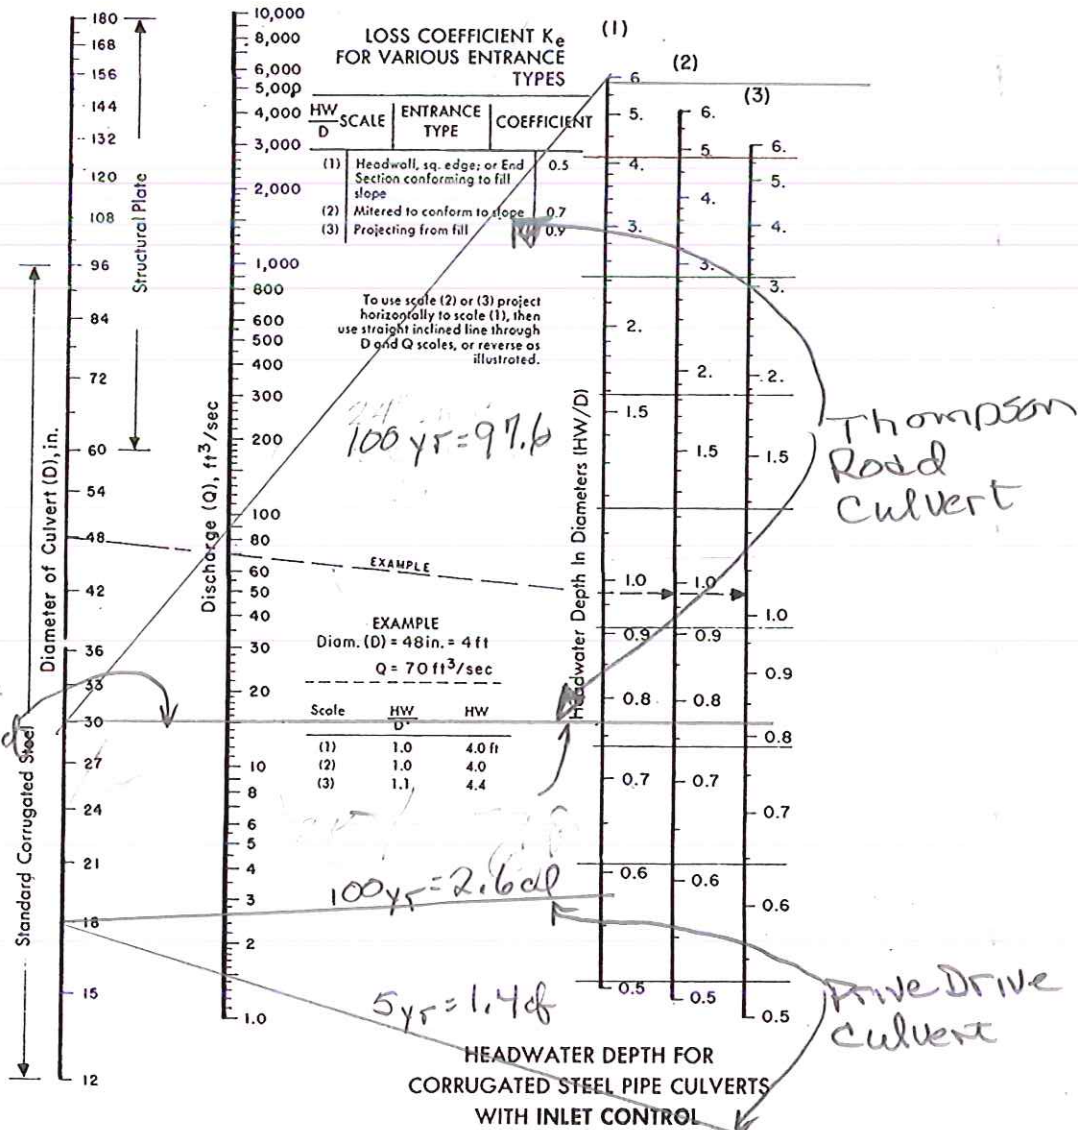 180
168
156
144
132
120
108
96
84
72
60
54
48
42
36
33
30
27
24
21
18
15
12
Structural Plate
Standard Corrugated Steel
Diameter of Culvert (D), in.
10,000
8,000
6,000
5,000
4,000
3,000
2,000
1,000
800
600
500
400
300
200
100
80
60
50
40
30
20
10
8
6
5
4
3
2
1.0
Discharge (Q), ft³/sec
LOSS COEFFICIENT Ke
FOR VARIOUS ENTRANCE
TYPES
HW/D SCALE ENTRANCE TYPE COEFFICIENT
(1) Headwall, sq. edge; or End 0.5
Section conforming to fill
slope
(2) Mitered to conform to slope 0.7
(3) Projecting from fill 0.9
To use scale (2) or (3) project
horizontally to scale (1), then
use straight inclined line through
D and Q scales, or reverse as
illustrated.
100 yr = 97.6
EXAMPLE
EXAMPLE
Diam. (D) = 48 in. = 4 ft
Q = 70 ft³/sec
Scale HW/D HW
(1) 1.0 4.0 ft
(2) 1.0 4.0
(3) 1.1 4.4
100yr = 2.6
5yr = 1.4 cf
Headwater Depth In Diameters (HW/D)
(1)
6
5.
4.
3.
2.
1.5
1.0
0.9
0.8
0.7
0.6
0.5
(2)
6.
5
4.
3.
2.
1.5
1.0
0.9
0.8
0.7
0.6
0.5
(3)
6.
5.
4.
3.
2.
1.5
1.0
0.9
0.8
0.7
0.6
0.5
Thompson
Road
Culvert
Drive
Culvert
HEADWATER DEPTH FOR
CORRUGATED STEEL PIPE CULVERTS
WITH INLET CONTROL